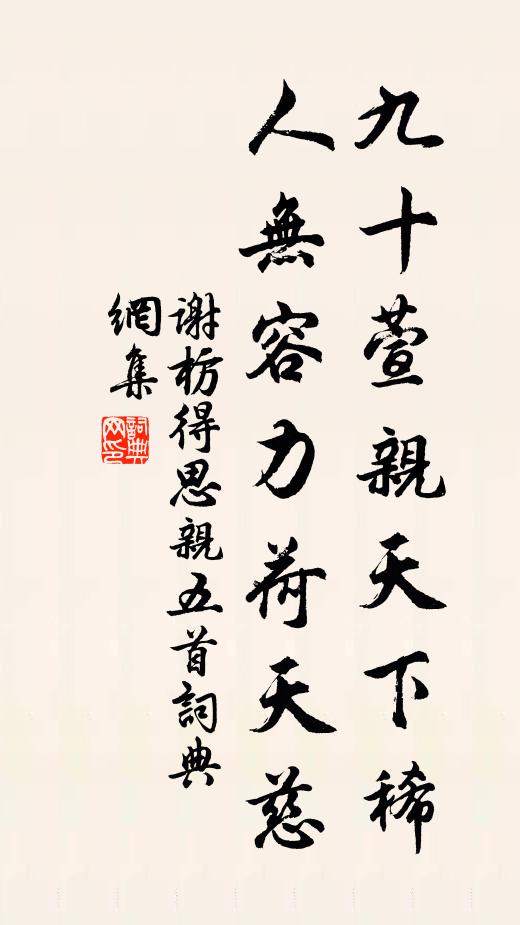 九十萱親天下稀
人無容力荷天慈
谢枋得思親五首詞典
網集
詞典
网印